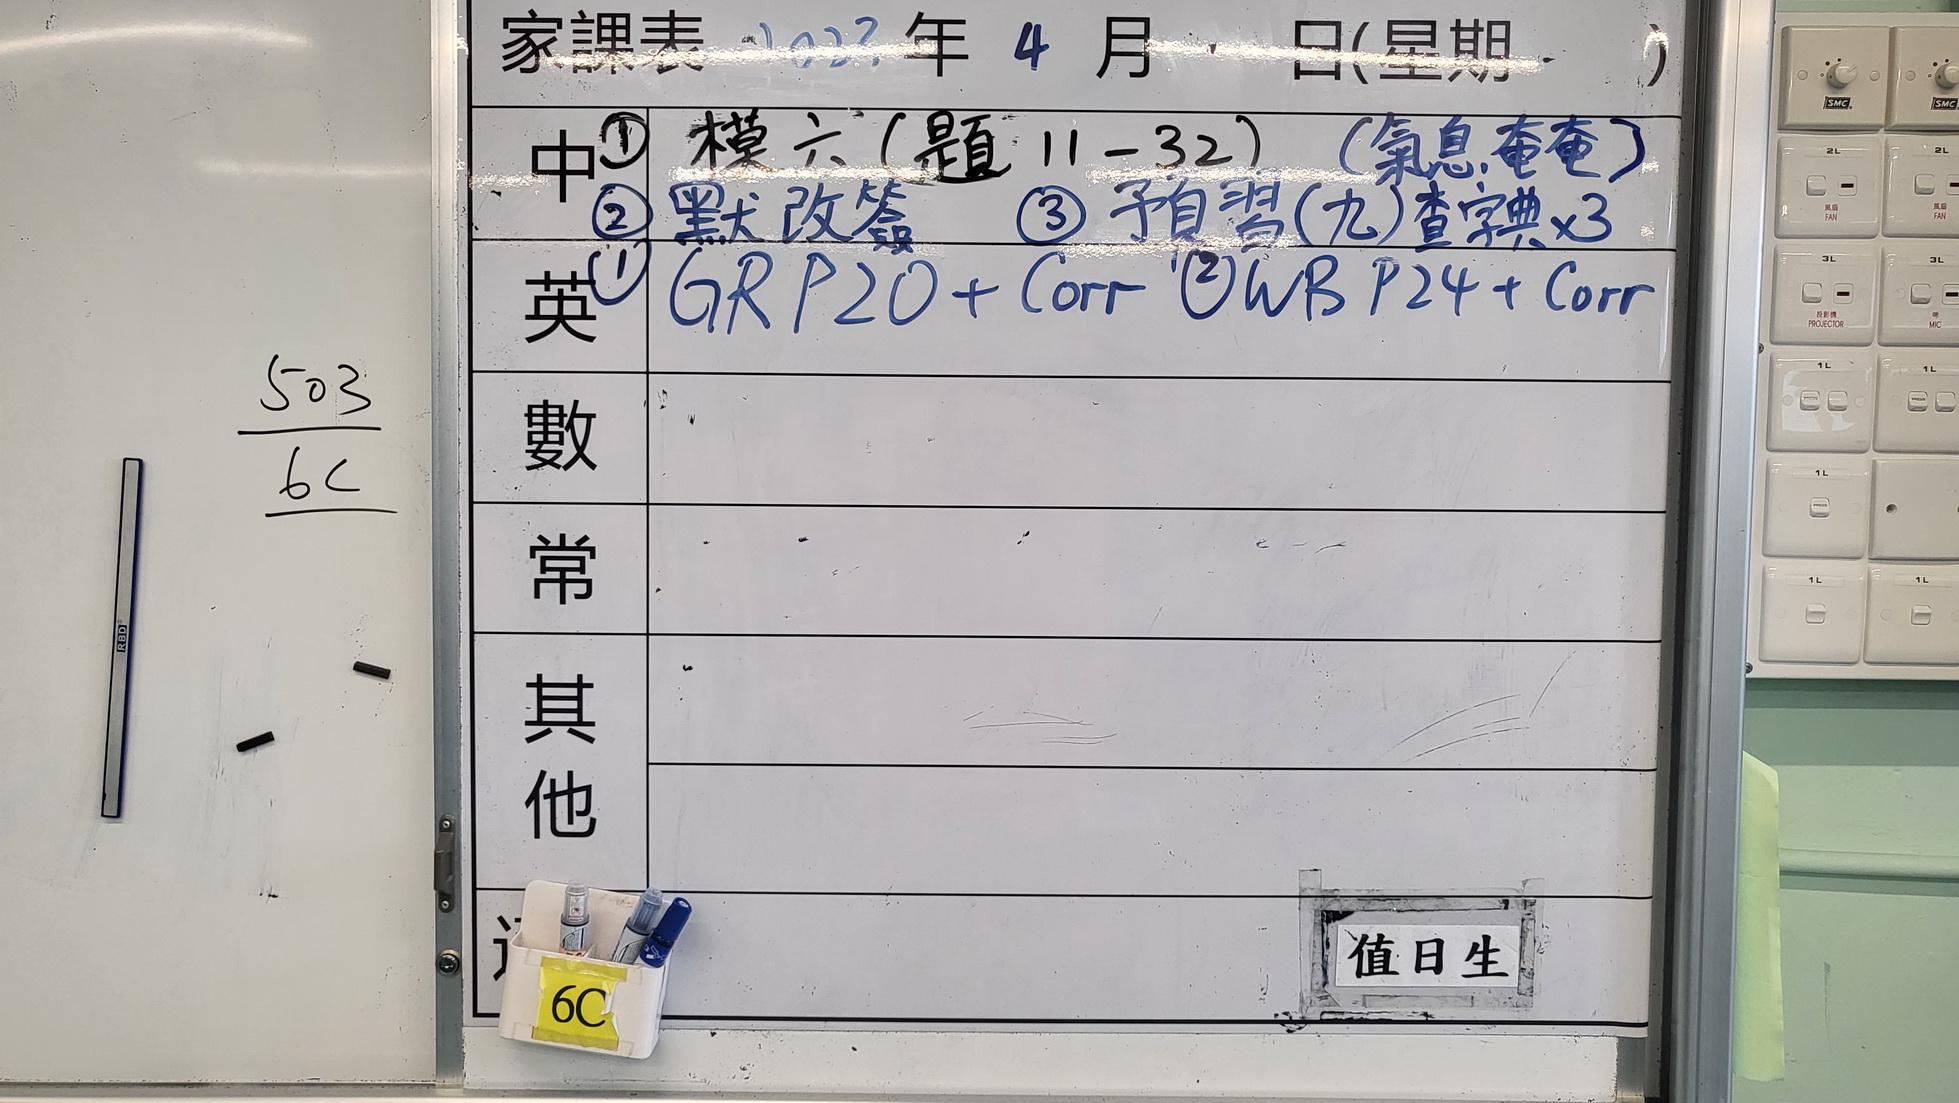 家課表 2023年 4 月 日(星期 )
中 ① 模六(題11-32) (氣息奄奄)
② 默改簽 ③ 預習(九)查字典x3
英 ① GR P20 + Corr ② WB P24 + Corr
數
常
其他
值日生
6C
503
6C
RBD
SMC
SMC
2L
2L
風扇
FAN
風扇
FAN
3L
3L
投影機
PROJECTOR
咪
MIC
1L
1L
1L
1L
1L